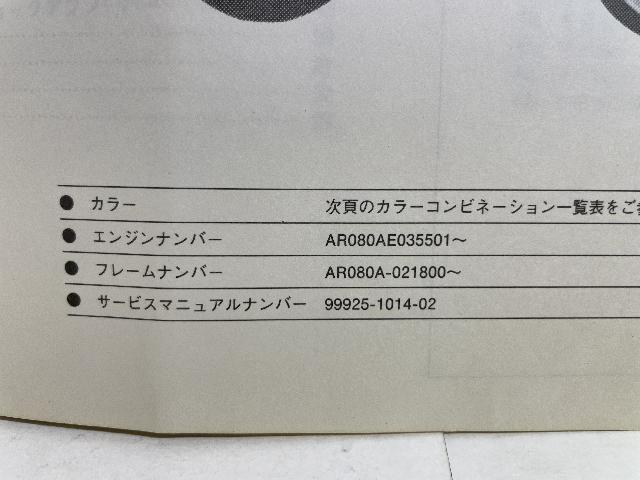 ● カラー 次頁のカラーコンビネーション一覧表をご
● エンジンナンバー AR080AE035501～
● フレームナンバー AR080A-021800～
● サービスマニュアルナンバー 99925-1014-02